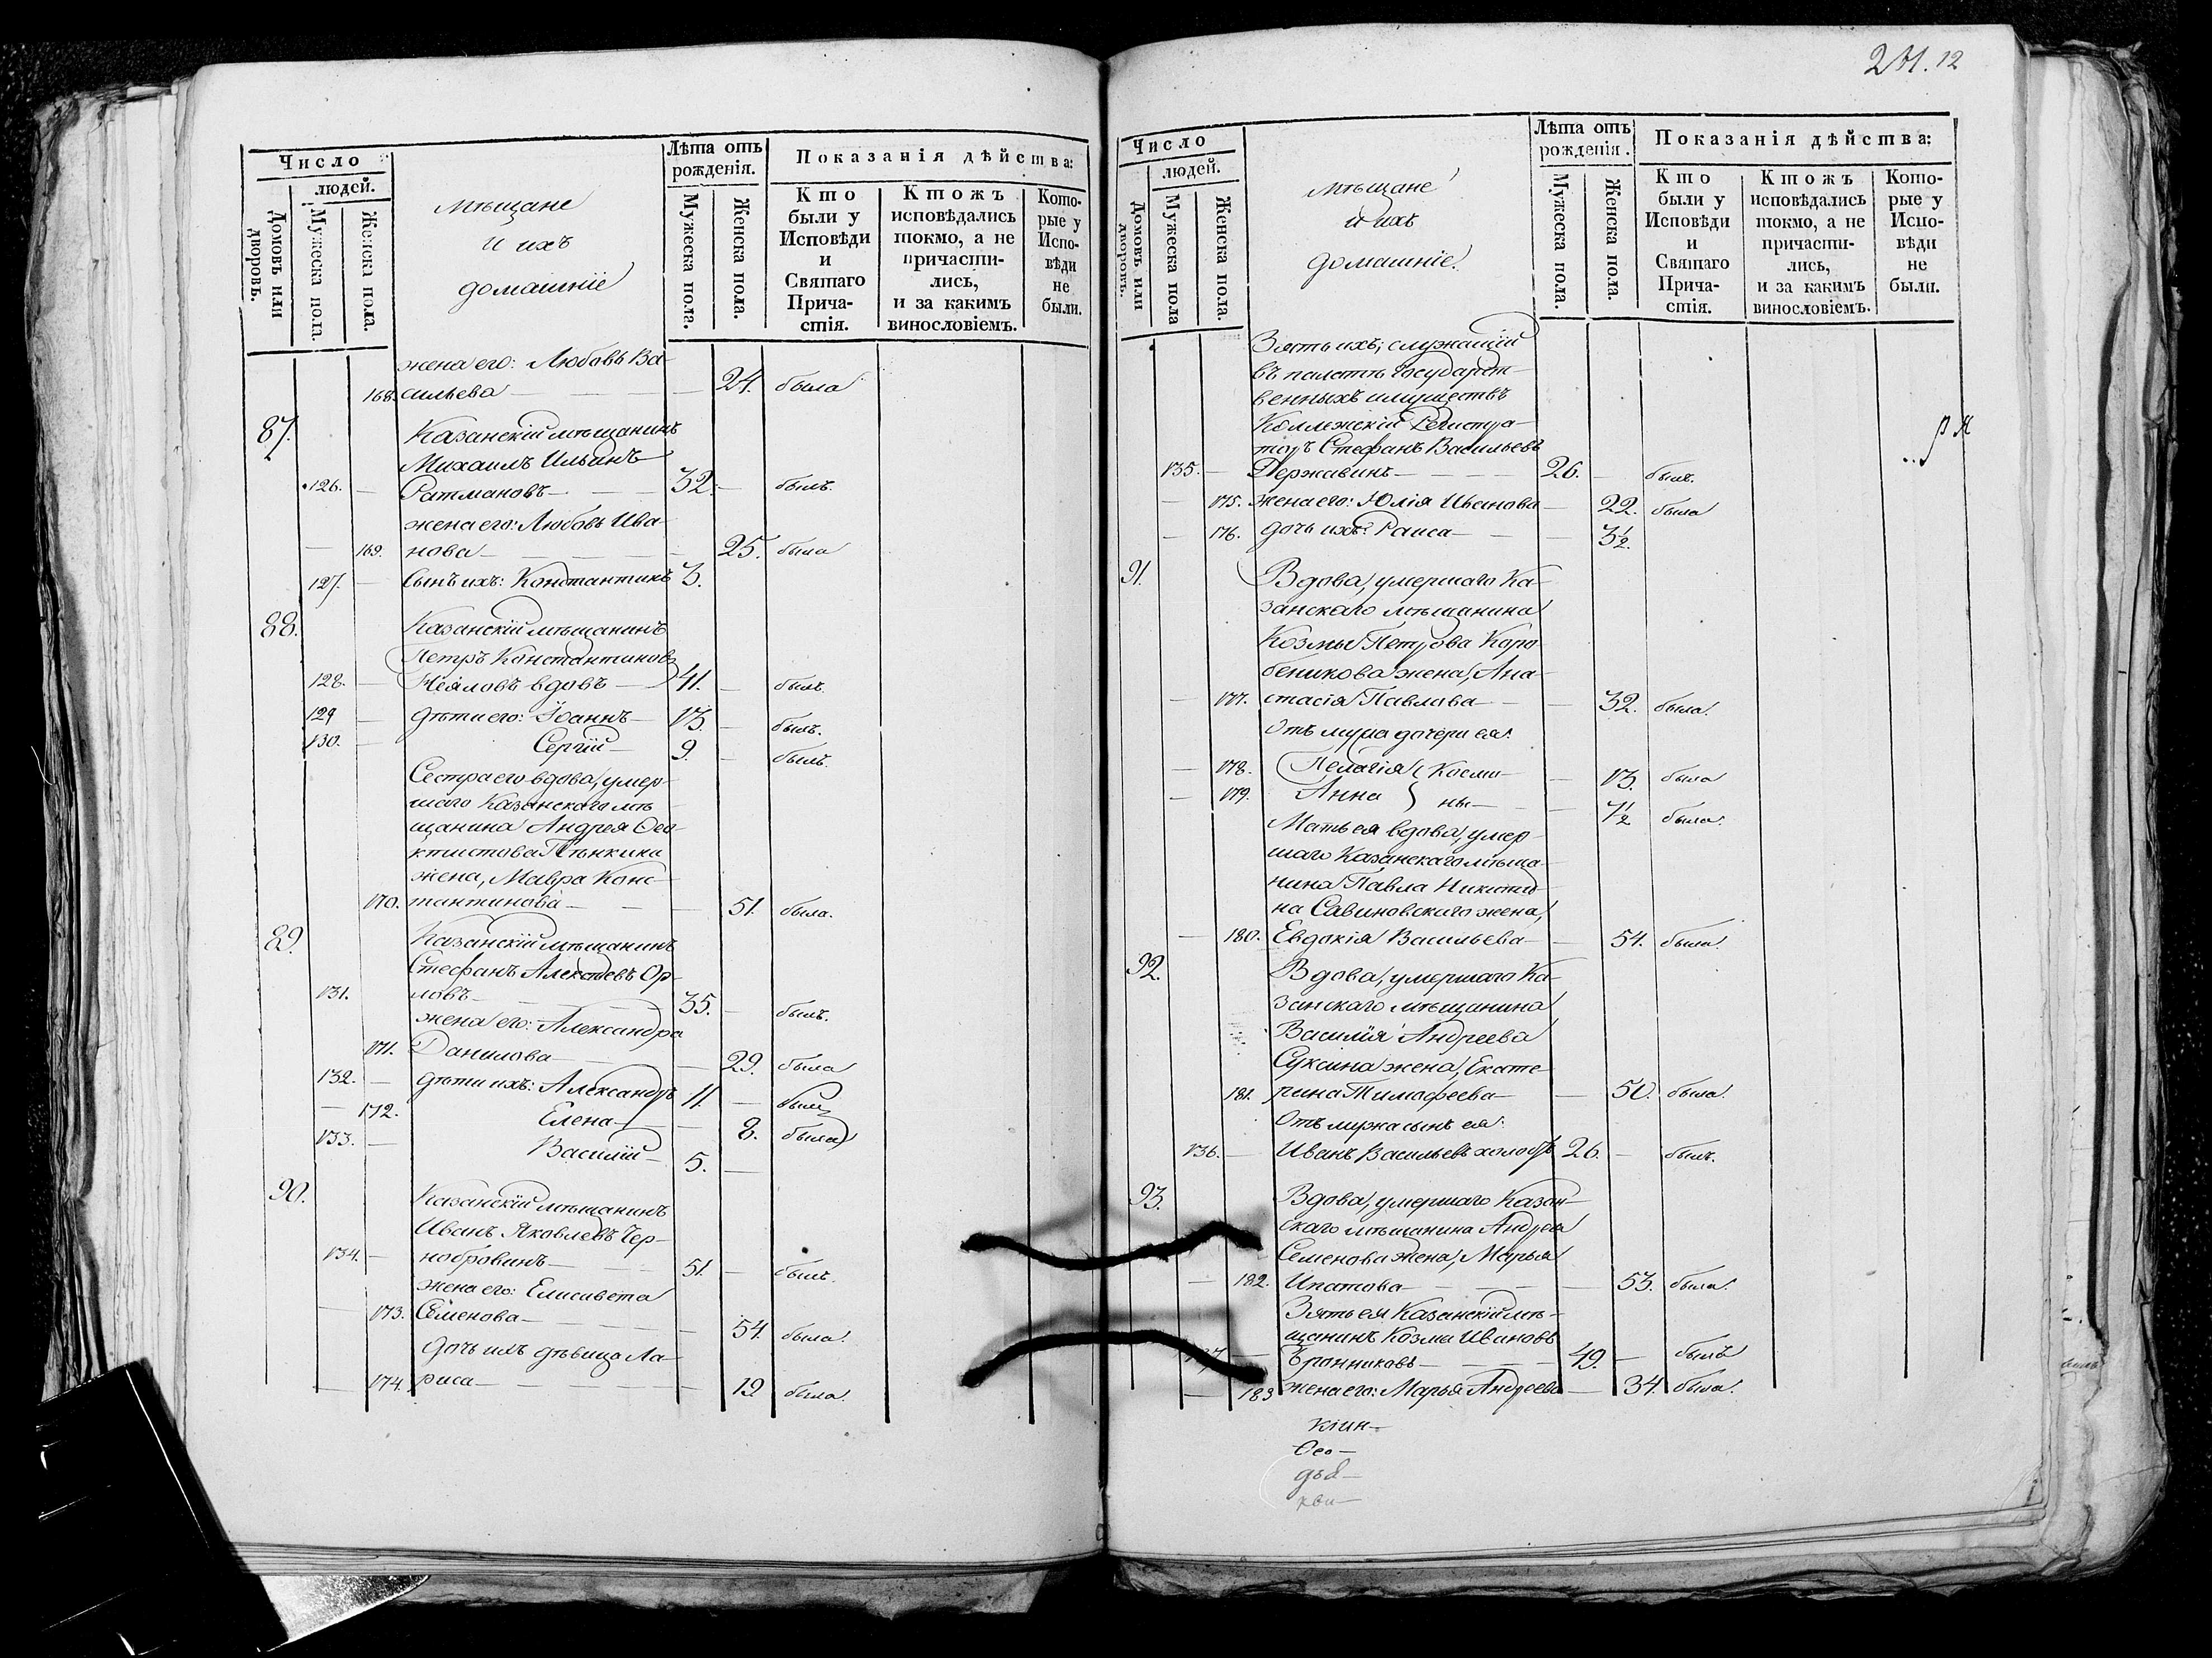 Число
людей.
Домовъ или дворовъ.
Мужеска пола
Женска пола.
мѣщане
и ихъ
домашніе
Лѣта отъ рожденія.
Мужеска пола.
Женска пола.
Показанія дѣйства:
Кто были у Исповѣди и Святаго Причастія.
Ктожъ исповѣдались токмо, а не причастились, и за какимъ винословіемъ.
Которые у Исповѣди не были.
жена его: Любовь Ва-
168. сильева 24. была
87. Казанскій мѣщанинъ
Михаилъ Ильинъ
126. Ратмановъ 32. былъ.
жена его: Любовь Ива-
169. нова 25. была
127. Сынъ ихъ: Константинъ 3.
88. Казанскій мѣщанинъ
Петръ Константиновъ
128. Нѣяловъ вдовъ 41. былъ.
129 дѣти его: Іоаннъ 13. былъ.
130. Сергій 9. былъ.
Сестра его вдова, умер-
шаго Казанскаго мѣ-
щанина Андрея Ѳео-
ктистова Пѣнкина
жена, Мавра Конс-
170. тантинова 51. была.
89. Казанскій мѣщанинъ
Стефанъ Алексѣевъ Ор-
131. ловъ 35. былъ.
жена его: Александра
171. Данилова 29. была
132. дѣти ихъ: Александръ 11. былъ
172. Елена 8. была
133. Василій 5.
90. Казанскій мѣщанинъ
Иванъ Яковлевъ Чер-
134. нобровинъ 51. былъ.
жена его: Елисавета
173. Семенова 54. была.
дочь ихъ дѣвица Ла-
174. риса 19 была.
12
Число
людей.
Домовъ или дворовъ.
Мужеска пола
Женска пола.
мѣщане
и ихъ
домашніе.
Лѣта отъ рожденія.
Мужеска пола.
Женска пола.
Показанія дѣйства:
Кто были у Исповѣди и Святаго Причастія.
Ктожъ исповѣдались токмо, а не причастились, и за какимъ винословіемъ.
Которые у Исповѣди не были.
Зять ихъ; служащій
въ палатѣ Государст-
венныхъ имуществъ
Коллежскій Регистра-
торъ Стефанъ Васильевъ
135. Державинъ 26. былъ.
175. жена его: Юлія Иванова 22. была
176. дочь ихъ: Раиса 3½.
91. Вдова, умершаго Ка-
занскаго мѣщанина
Козмы Петрова Коро-
бейникова жена, Ана-
177. стасія Павлова 32. была.
отъ мужа дочери ея:
178. Пелагія Козми- 13. была
179. Анна ны 7½ была.
Мать ея вдова, умер-
шаго Казанскаго мѣща-
нина Павла Никити-
на Савиновскаго жена,
180. Евдокія Васильева 54. была.
92. Вдова, умершаго Ка-
занскаго мѣщанина
Василія Андреева
Суксина жена, Екате-
181. рина Тимофеева 50. была.
Отъ мужа сынъ ея:
136. Иванъ Васильевъ холостъ 26. былъ.
93. Вдова, умершаго Казан-
скаго мѣщанина Андрея
Семенова жена, Марья
182. Ипатова 53. была.
Зять ея Казанскій мѣ-
щанинъ Козма Ивановъ
137 Бронниковъ 49. былъ
183 жена его: Марья Андреева 34. была.